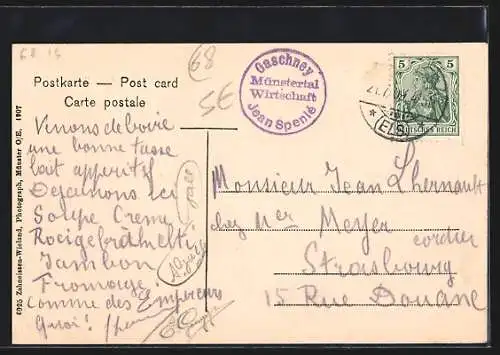 68
SE
Postkarte — Post card
Carte postale
Gaschney
Münstertal
Wirtschaft
Jean Spenlé
5 5
DEUTSCHES REICH
(ELS)
Venons de boire
une bonne tasse
lait apperitif
Dejeunons ici
Soupe Creme
Jambon
Fromage
Comme des Empereurs
quoi!
Monsieur Jean Lhernault
chez Mer Meyer
cordier
Strasbourg
15 Rue Douane
6095 Zahneissen-Wieland, Photograph, Münster O/E. 1907